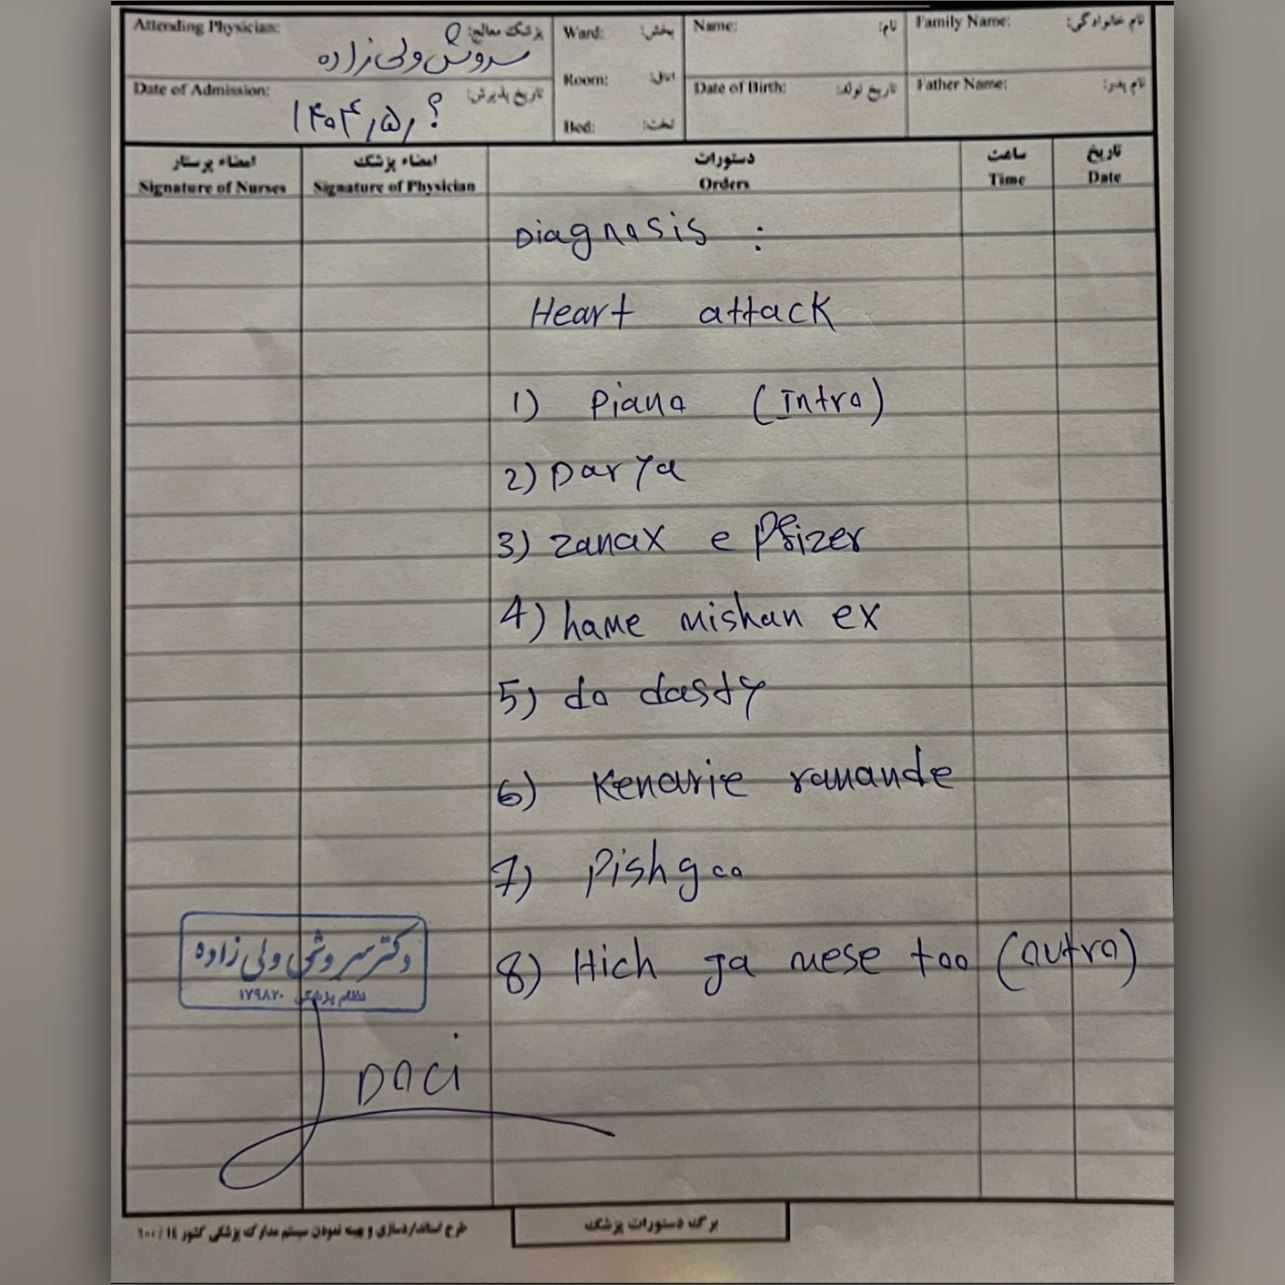 Attending Physician: پزشک معالج:
سروش ولی زاده
Date of Admission: تاریخ پذیرش:
۱۴۰۴,۵,؟
Ward: بخش:
Room: اتاق:
Bed: تخت:
Name: نام:
Date of Birth: تاریخ تولد:
Family Name: نام خانوادگی:
Father Name: نام پدر:
امضاء پرستار
Signature of Nurses
امضاء پزشک
Signature of Physician
دستورات
Orders
ساعت
Time
تاریخ
Date
Diagnosis :
Heart attack
1) Piano (Intro)
2) Darya
3) zanax e Pfizer
4) hame mishan ex
5) do dasty
6) Kenarie ranande
7) Pishgoo
8) Hich ja mese too (outro)
دکتر سروش ولی زاده
نظام پزشکی ۱۷۹۸۲۰
DACI
برگ دستورات پزشک
طرح استانداردسازی و بهینه نمودن سیستم مدارک پزشکی کشور ۱۴/۱۰۰